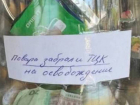 Повара забрал и ТЦК
на освобождение